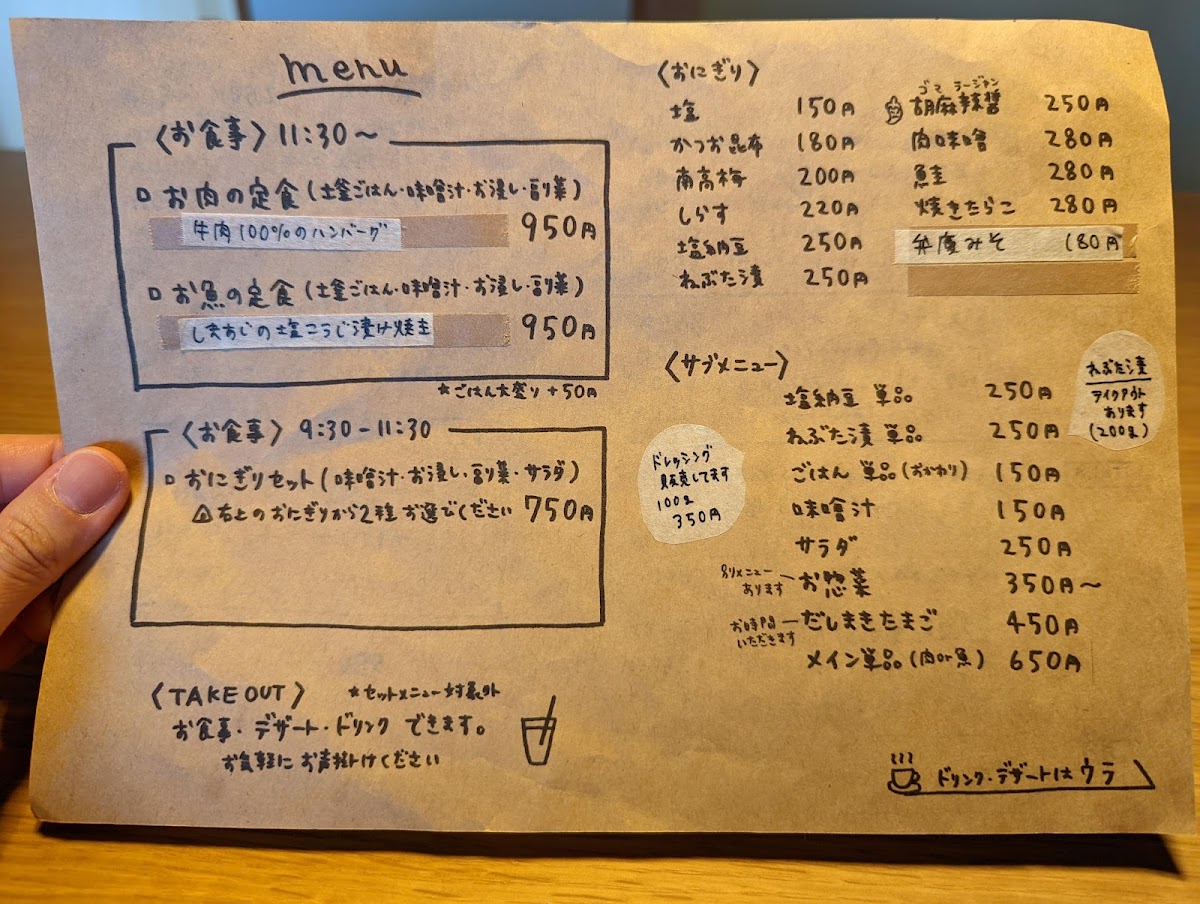 menu
〈お食事〉11:30〜
□ お肉の定食(土釜ごはん・味噌汁・お浸し・副菜)
牛肉100%のハンバーグ 950円
□ お魚の定食(土釜ごはん・味噌汁・お浸し・副菜)
しまあじの塩こうじ漬け焼き 950円
★ごはん大盛り+50円
〈お食事〉9:30-11:30
□ おにぎりセット(味噌汁・お浸し・副菜・サラダ)
右上のおにぎりから2種お選びください 750円
〈TAKE OUT〉 ★セットメニュー対象外
お食事・デザート・ドリンク できます。
お気軽に お声掛けください
〈おにぎり〉
塩 150円
かつお昆布 180円
南高梅 200円
しらす 220円
塩納豆 250円
ねぶた漬 250円
ゴマ ラージャン
胡麻辣醬 250円
肉味噌 280円
鮭 280円
焼きたらこ 280円
弁慶みそ 180円
〈サブメニュー〉
塩納豆 単品 250円
ねぶた漬 単品 250円
ごはん 単品(おかわり) 150円
味噌汁 150円
サラダ 250円
別メニューあります
お惣菜 350円〜
お時間いただきます
だしまきたまご 450円
メイン単品(肉or魚) 650円
ねぶた漬
テイクアウト
あります
(200g)
ドレッシング
販売してます
100g
350円
ドリンク・デザートはウラ